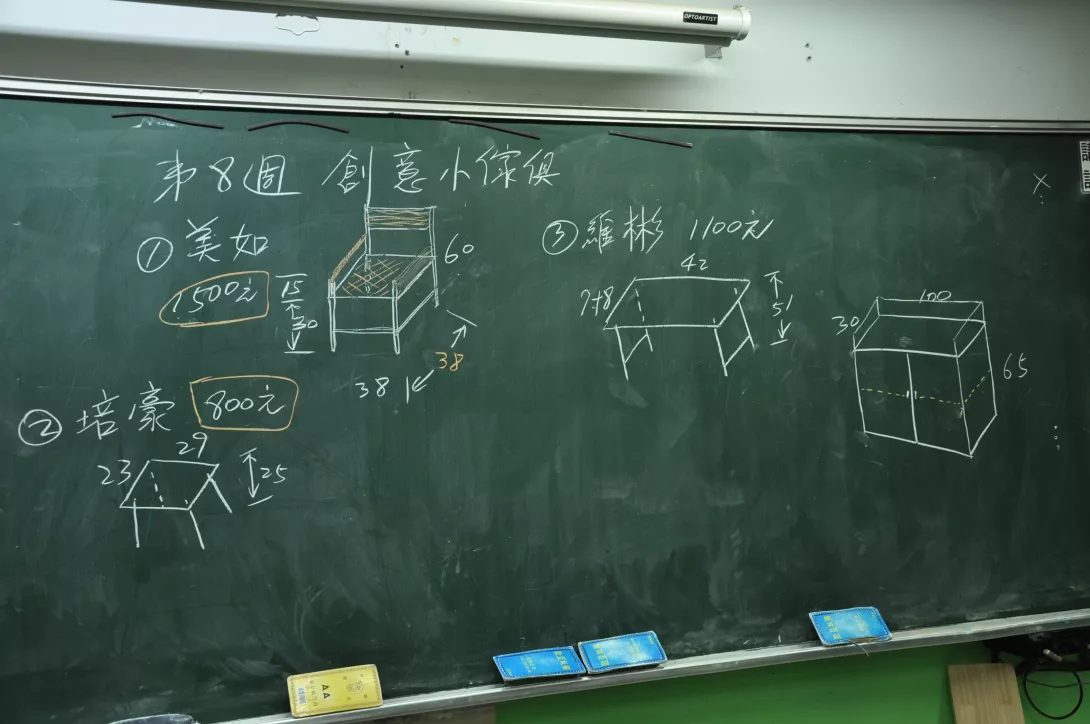 OPTOARTIST
第8週 創意小傢俱
①美如
1500元
15
30
60
38
38
②培豪 800元
29
23
25
③羅彬 1100元
42
51
100
30
65
AA